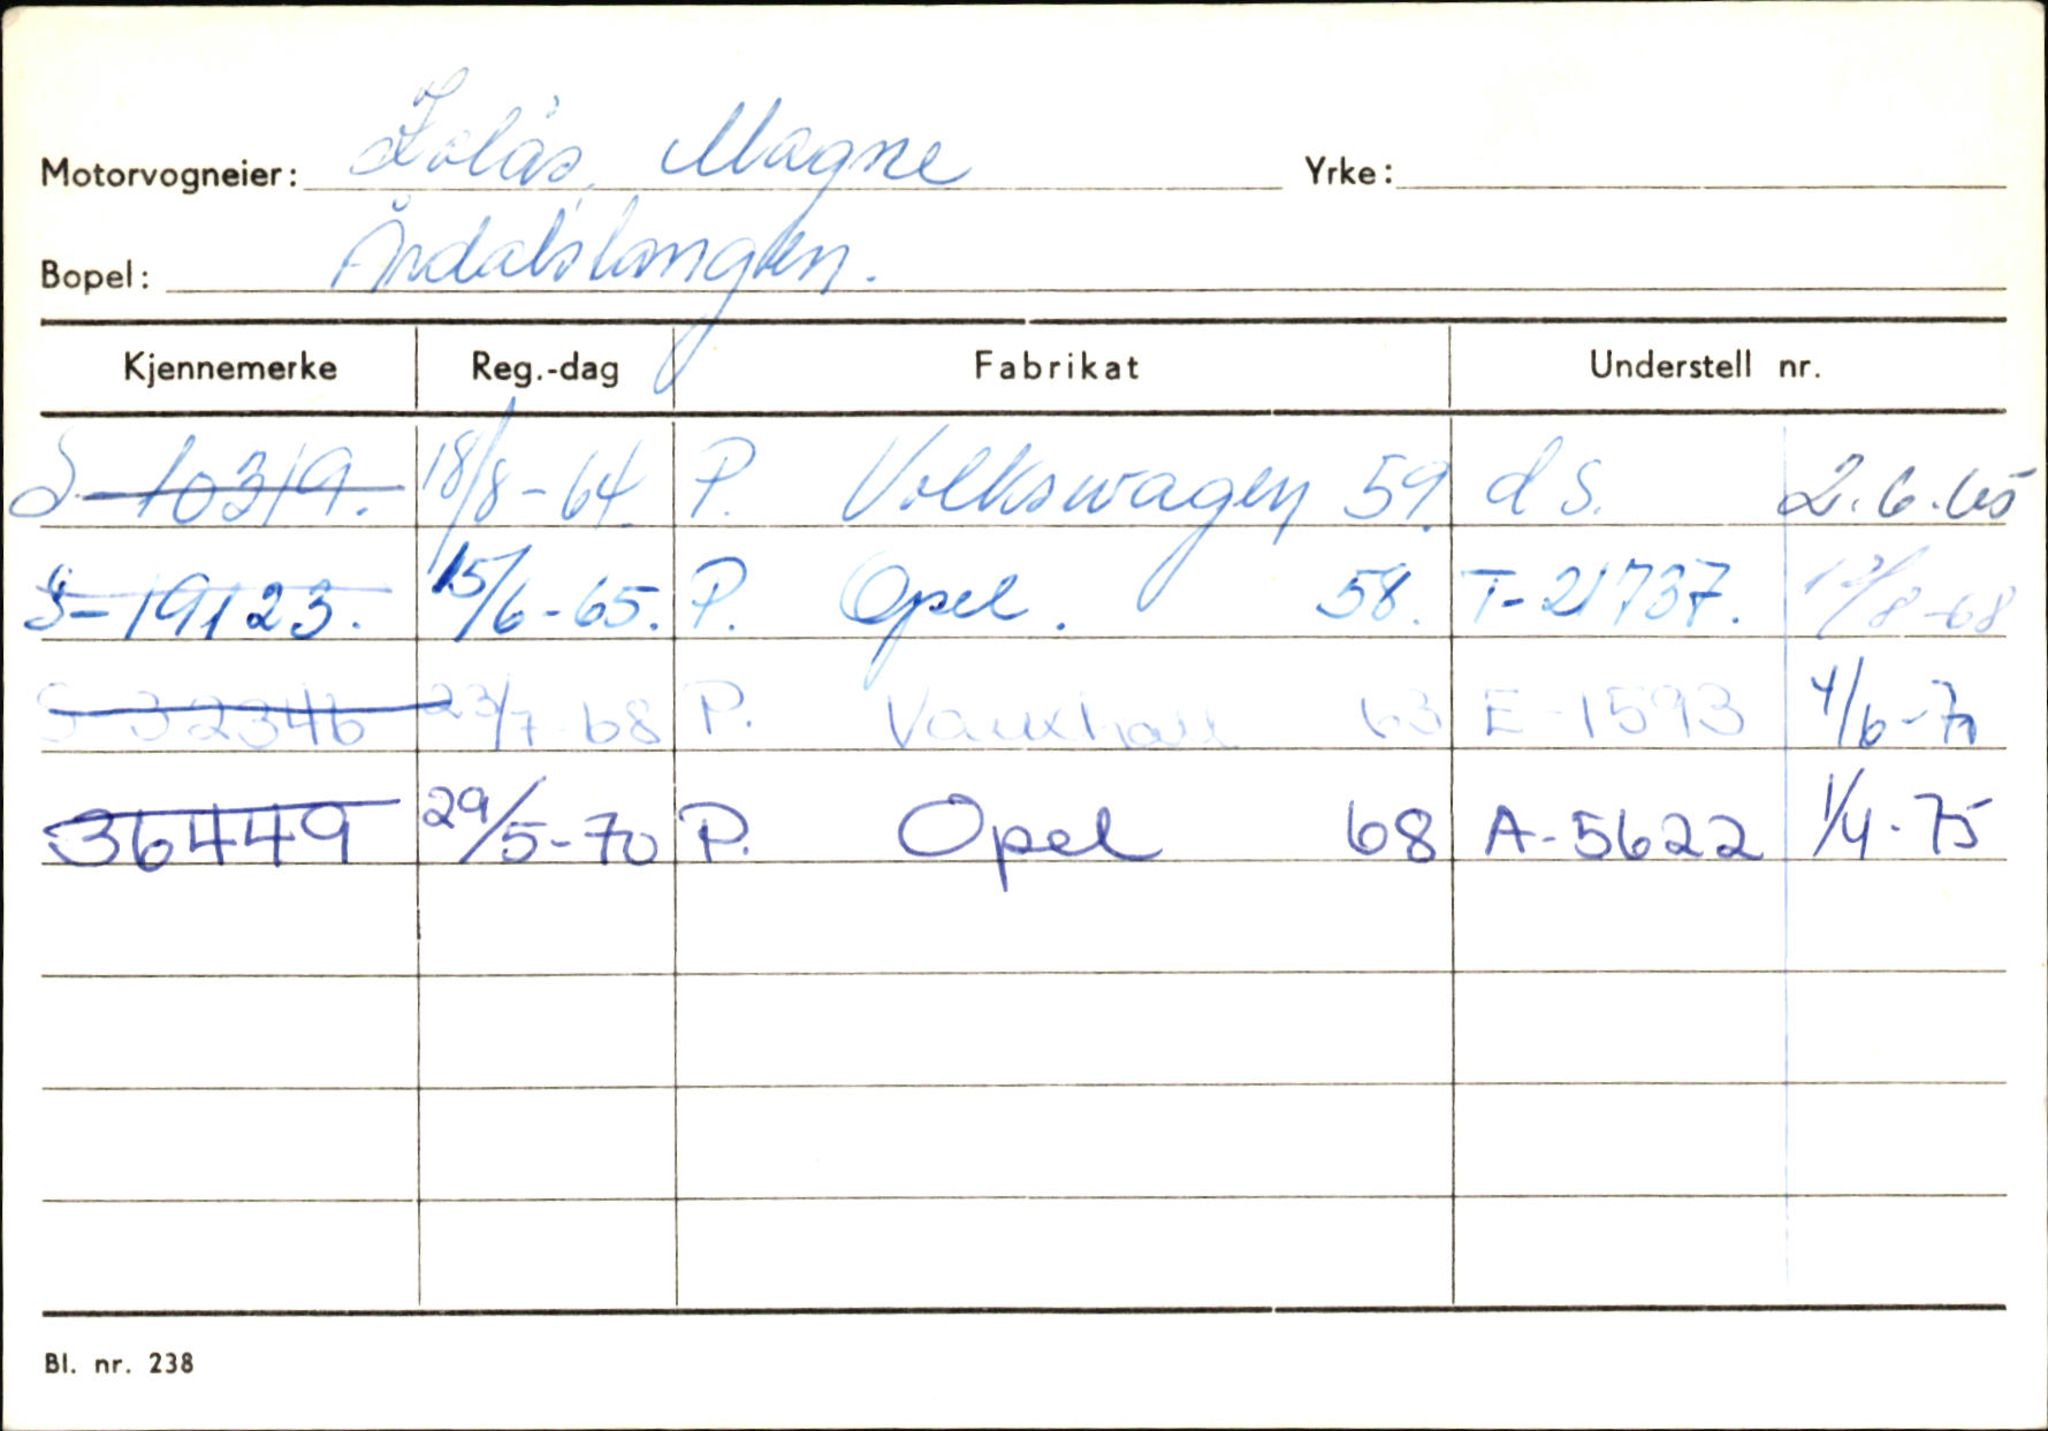 Motorvogneier: Lolås, Magne Yrke:
Bopel: Årdalstangen.
Kjennemerke Reg.-dag Fabrikat Understell nr.
S-10319. 18/8-64. P. Volkswagen 59. d S. 2.6.65
S-19123. 15/6-65. P. Opel. 58. T-21737. 12/8-68
S-32346 23/7-68 P. Vauxhall 63 E-1593 4/6-70
36449 29/5-70 P. Opel 68 A-5622 1/4-75
Bl. nr. 238